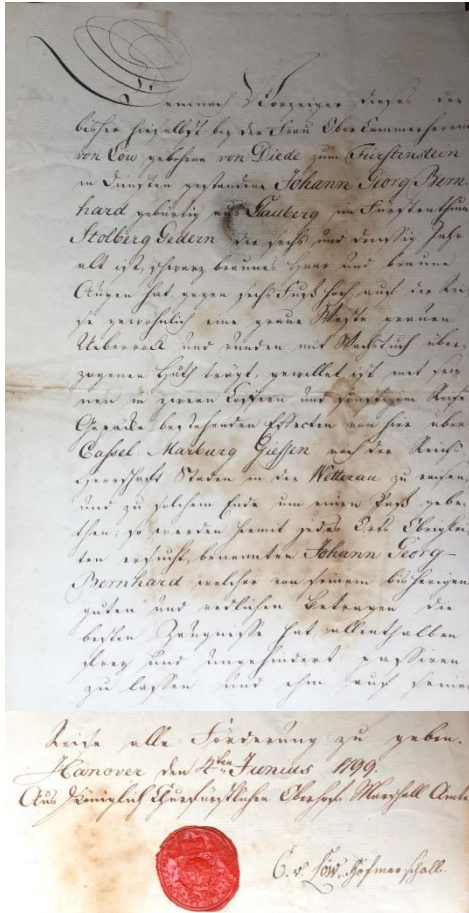 Demnach Vorzeiger dieses der
bisher hieselbst bey der Frau Ober Cammerherrin
von Löw gebohrne von Diede zum Fürstenstein
in Diensten gestandene Johann Georg Bern
hard gebürtig aus Gauberg im Fürstenthum
Stolberg Gedern der sechs und dreissig Jahr
alt ist, schwarz braunes Haar und braune
Augen hat, gegen sechs Fuß hoch, auf der Rei
se gewöhnlich eine graue Weste grauen
Ueberrock und runden mit Wachstuch über-
zogenen Huth trägt, gewillet ist mit sei
nen in zween Koffern und sonstigem Reise
Geräthe bestehenden Effecten von hier über
Cassel Marburg Giessen nach der Reichs
Herrschaft Staden in der Wetterau zu reisen,
und zu solchem Ende um einen Paß gebe
then; so werden hiemit jedes Orts Obrigkei
ten ersucht, benannten Johann Georg-
Bernhard welcher von seinem bisherigen
guten und redlichen Betragen die
besten Zeugnisse hat allenthalben
frey und ungehindert passiren
zu lassen und ihm auf seiner
Reise alle Förderung zu geben.
Hanover den 4ten Junius 1799.
Aus Königlich Churfürstlichen Oberhof Marschall Amte
C. v. Löw. Hofmarschall.